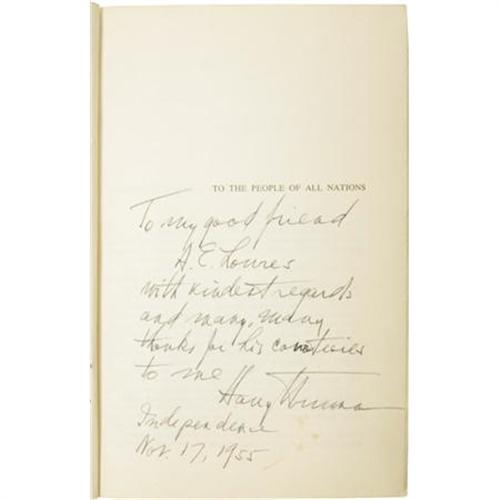 TO THE PEOPLE OF ALL NATIONS
To my good friend
A.E. Lowres
with kindest regards
and many, many
thanks for his courtesies
to me Harry Truman
Independence
Nov. 17, 1955